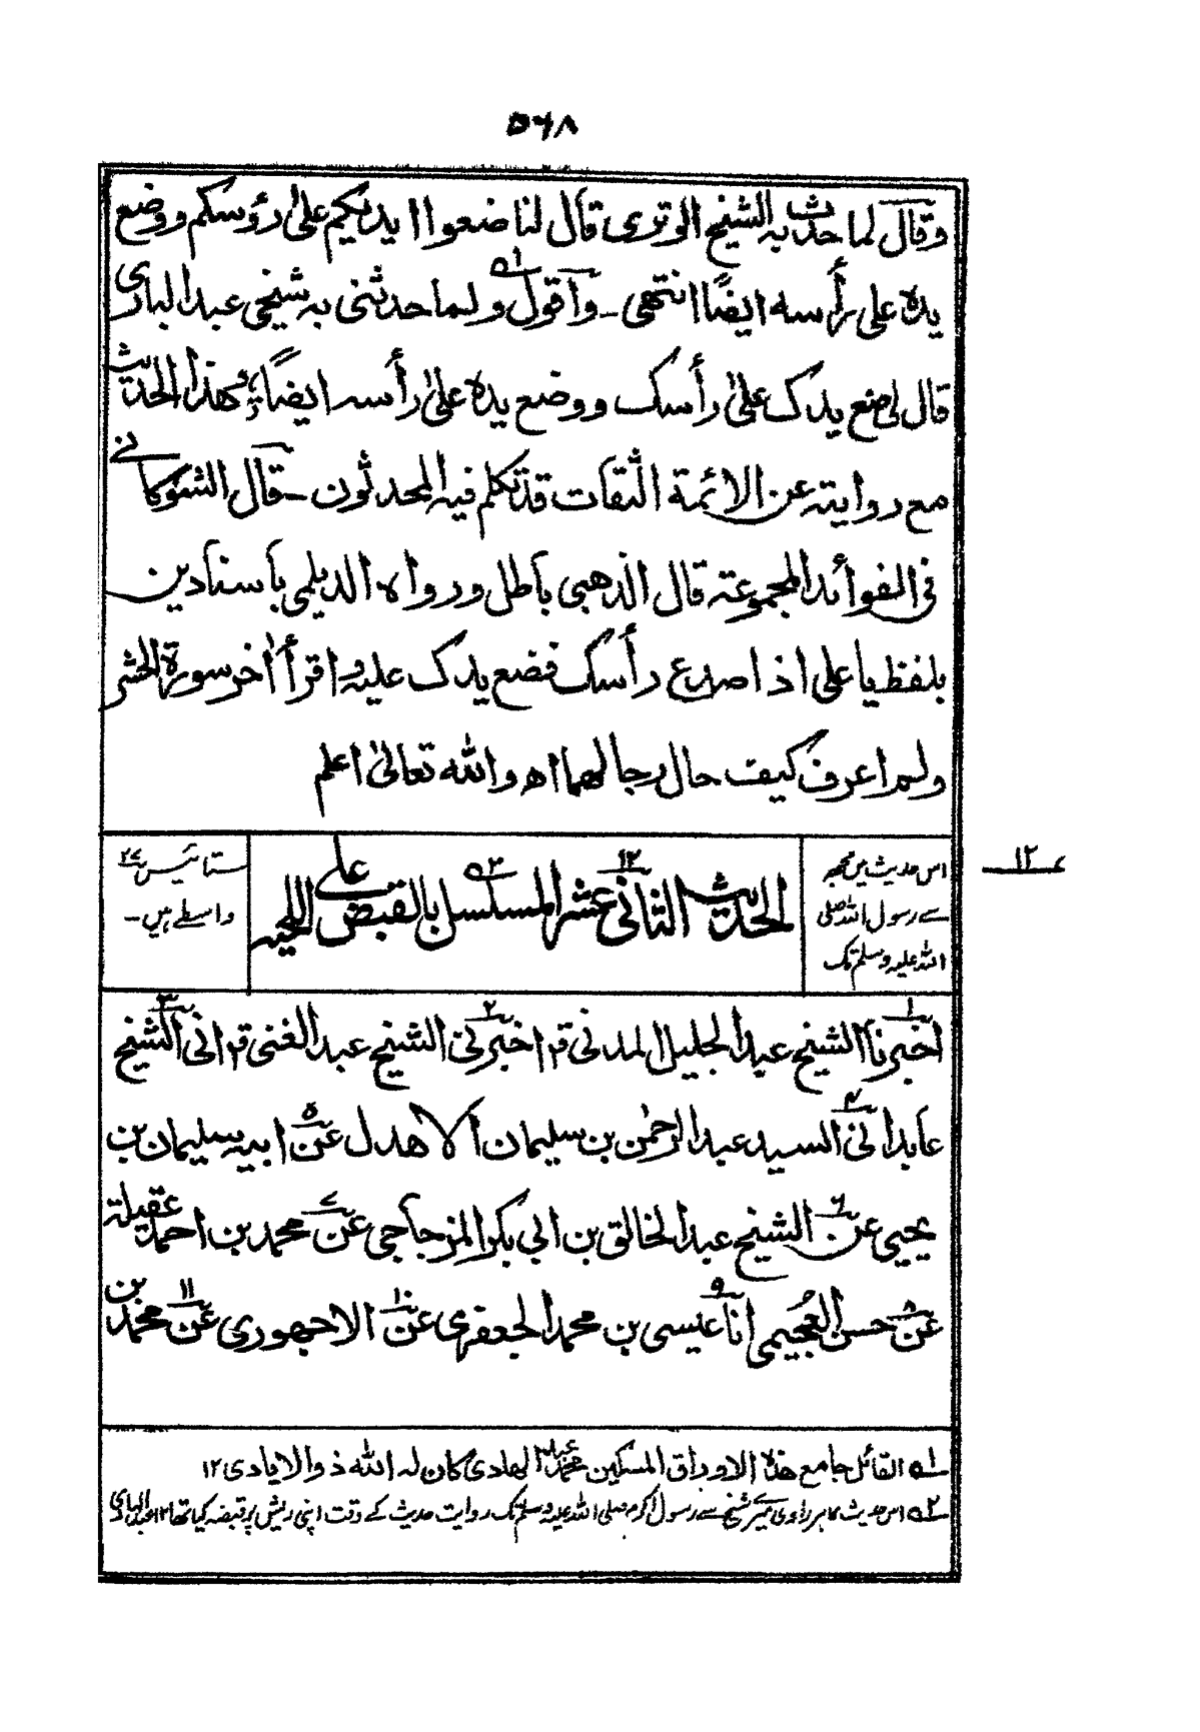 ۵۶۸
وقال لما حدث به الشيخ الوترى قال لنا ضعوا ايديكم على رؤوسكم ووضع
يده على رأسه ايضًا انتهى ۔ واقول ولما حدثنى به شيخى عبد البارى
قال لى ضع يدك على رأسك ووضع يده على رأسه ايضًا هذا الحديث
مع روايته عن الائمة الثقات قد تكلم فيه المحدثون ۔ قال الشوكانے
فى الفوائد المجموعة قال الذهبى باطل ورواه الديلمى باسنادين
بلفظ يا على اذا صدع رأسك فضع يدك عليه واقرأ اٰخر سورة الحشر
ولم اعرف كيف حال رجالهما اھ والله تعالىٰ اعلم
۱۲
اس حدیث میں مجھ
سے رسول اللہ صلی
اللہ علیہ وسلم تک
الحديث الثانى عشر ۱۲ المسلسل ۲ بالقبض على اللحيه
ستائیس ۲۷
واسطے ہیں ۔
اخبرنا ۱ الشيخ عبد الجليل المدنى قر اخبرنى ۲ الشيخ عبد الغنى قر انى ۳ الشيخ
عابد انى ۴ السيد عبد الرحمٰن بن سليمان الاهدل عن ۵ ابيه سليمان بن
يحيى عن ۶ الشيخ عبد الخالق بن ابى بكر المزجاجى عن ۷ محمد بن احمد عقيلة
عن ۸ حسن العجيمى انا ۹ عيسى بن محمد الجعفرى عن ۱۰ الاجهورى عن ۱۱ محمد بن
۱ القائل جامع هذه الاوراق المسكين محمد عبد الهادى كان له الله ذو الايادى ۱۲
۲ اس حدیث کا ہر راوی میرے شیخ سے رسول اکرم صلی اللہ علیہ وسلم تک روایت حدیث کے وقت اپنی ریش پر قبضہ کیا تھا ۱۲ عبد الہادی